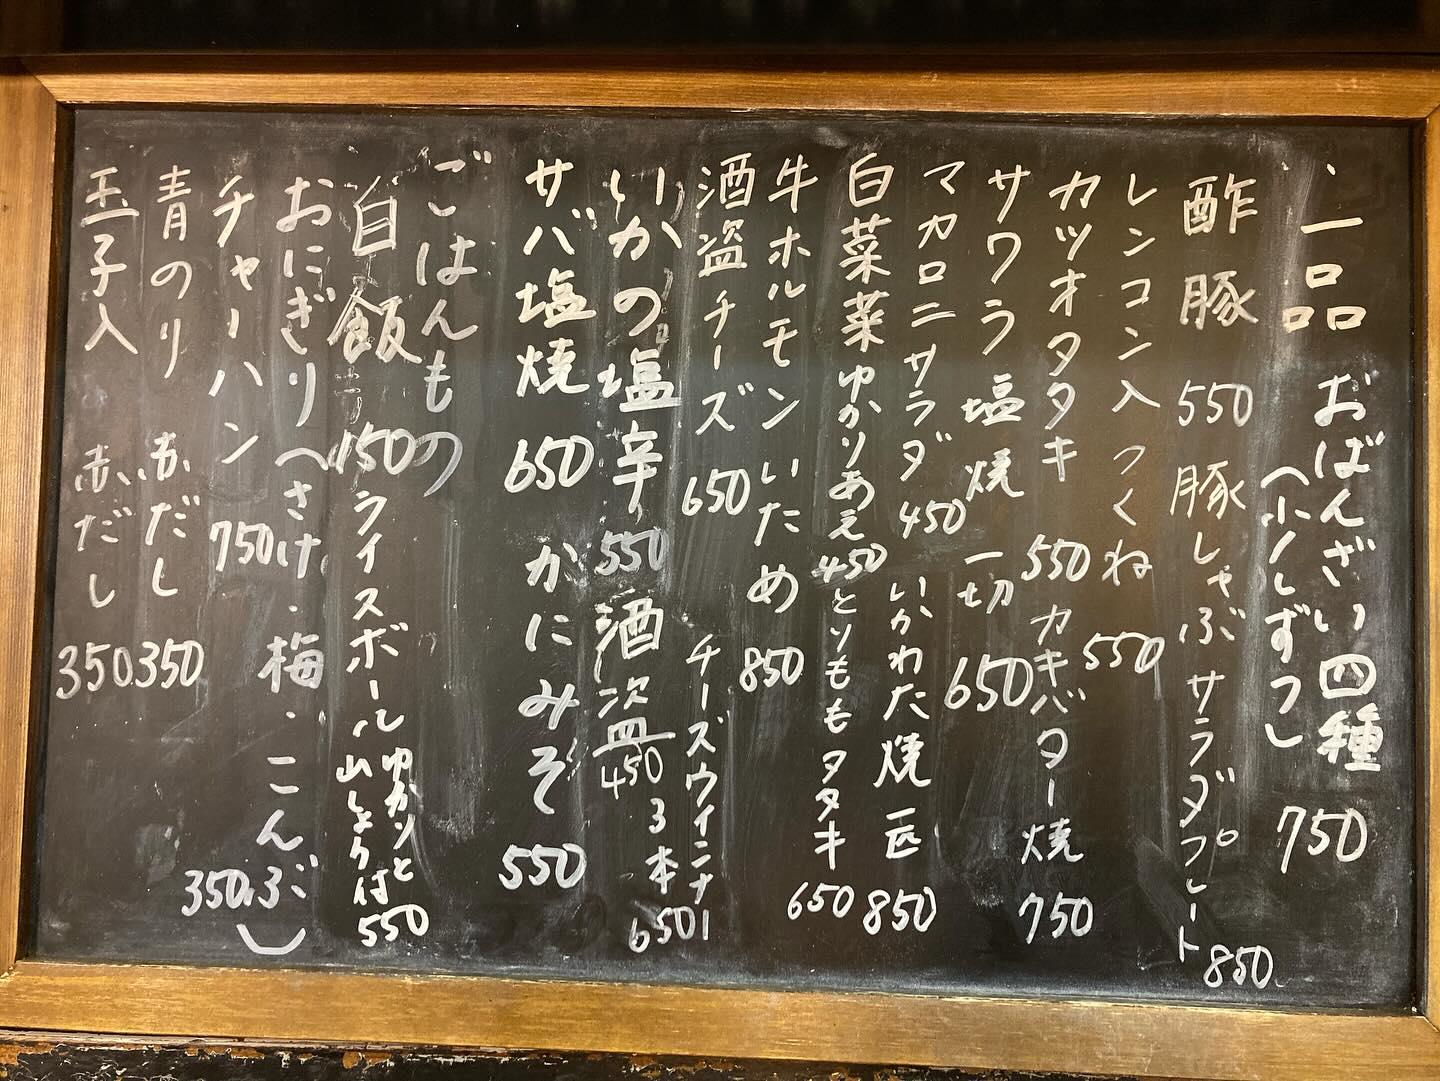 一品 おばんざい四種 750
(少しずつ)
酢豚 550 豚しゃぶサラダプレート 850
レンコン入つくね 550
カツオタタキ 550 カキバター焼 750
サワラ塩焼 一切 650
マカロニサラダ 450 いかわた焼 一匹 850
白菜菜ゆかりあえ 450 とりももタタキ 650
牛ホルモンいため 850
酒盗チーズ 650 チーズウインナー 3本 650
いかの塩辛 550 酒盗 450
サバ塩焼 650 かにみそ 550
ごはんもの
白飯 150 ライスボール ゆかりと山しょう付 550
おにぎり(さけ・梅・こんぶ) 350
チャーハン 750
青のり 赤だし 350
玉子入 赤だし 350